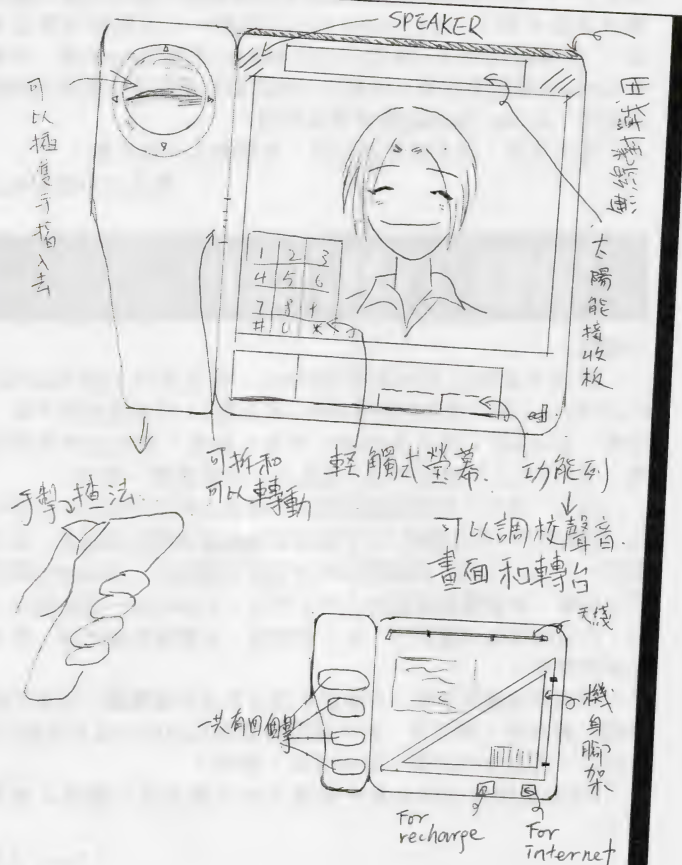 SPEAKER
可以插隻手指入去
太陽能接收板
1 2 3
4 5 6
7 8 +
# 0 *
可拆和
可以轉動
輕觸式螢幕
功能列
可以調校聲音
畫面和轉台
手掣揸法
天綫
一共有四個掣
機身腳架
For
recharge
For
internet